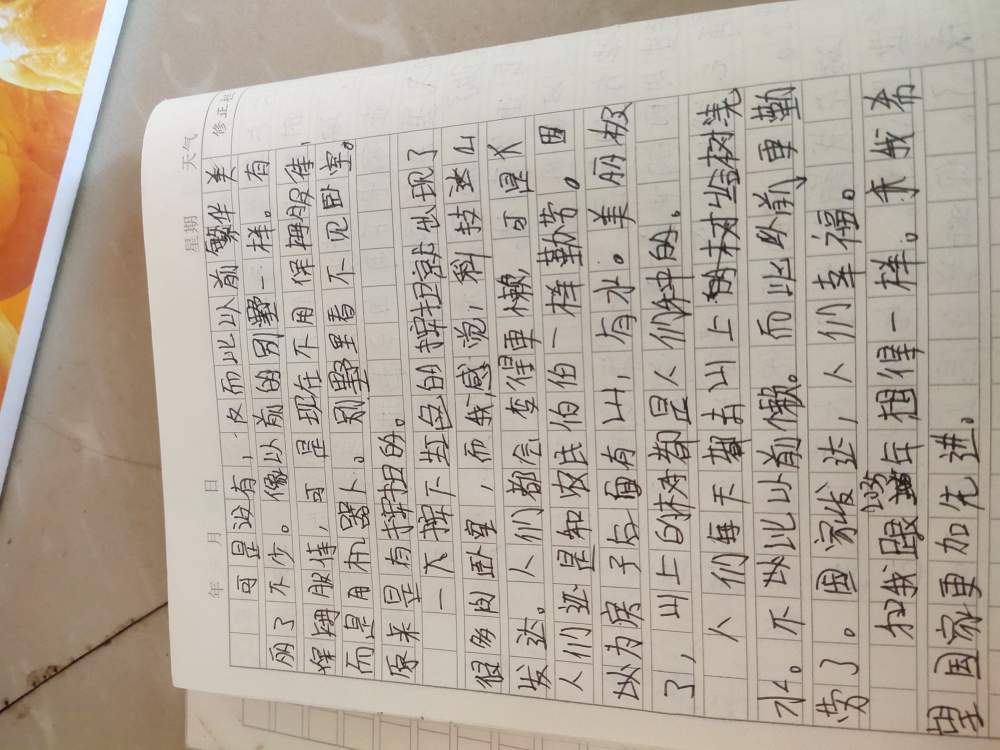 年 月 日 星期 天气
修正栏
可是没有，反而比以前繁华美
丽了不少。像以前的别野一样。有
保姆服侍，可是现在不用保姆服侍，
而是用机器人。别野里看不见卧室。
原来是有按扭的。
一飞按下红色的按扭就出现了
很多的卧室，而我感觉，科技太
发达。人们都会变得更懒，可是人
人们还是和农民伯伯一样勤劳。因
以为房子后面有山，有水。美丽极
了，山上的树都是人们种的。
人们每天都去山上给树浇
水。不以比以前懒。而比以前更勤
劳了。国家发达，人们幸福。
和我跟年相得一样。未我希
望国家更加先进。